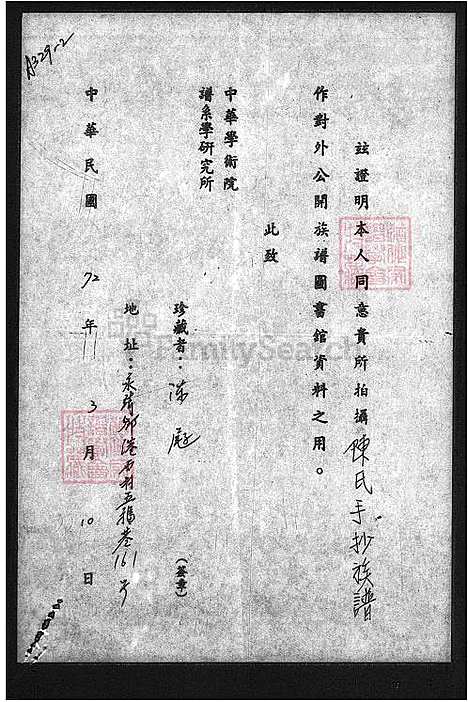 A329-2
茲證明本人同意貴所拍攝陳氏手抄族譜
作對外公開族譜圖書館資料之用。
此致
中華學術院
譜系學研究所
珍藏者：陳
(簽章)
地址：永靖鄉港西村五福巷161號
中華民國72年3月10日
FamilySearch